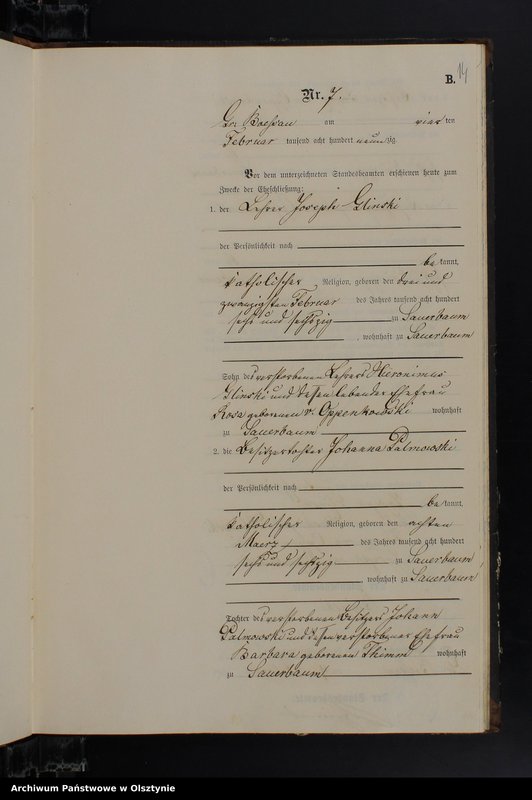 B. 14
Nr. 7.
Gr. Boessau am vier ten
Februar tausend acht hundert neunzig
Vor dem unterzeichneten Standesbeamten erschienen heute zum
Zwecke der Eheschließung:
1. der Lehrer Joseph Glinski
der Persönlichkeit nach
be kannt,
katholischer Religion, geboren den drei und
zwanzigsten Februar des Jahres tausend acht hundert
sechs und sechszig zu Sauerbaum
, wohnhaft zu Sauerbaum
Sohn des verstorbenen Lehrers Hieronimus
Glinski und dessen lebender Ehefrau
Rosa geborenen v. Oppenkowski wohnhaft
zu Sauerbaum
2. die Besitzertochter Johanna Palmowski
der Persönlichkeit nach
be kannt,
katholischer Religion, geboren den achten
Maerz des Jahres tausend acht hundert
sechs und sechszig zu Sauerbaum
, wohnhaft zu Sauerbaum
Tochter des verstorbenen Besitzers Johann
Palmowski und dessen verstorbener Ehefrau
Barbara geborenen Thimm wohnhaft
zu Sauerbaum
Archiwum Państwowe w Olsztynie